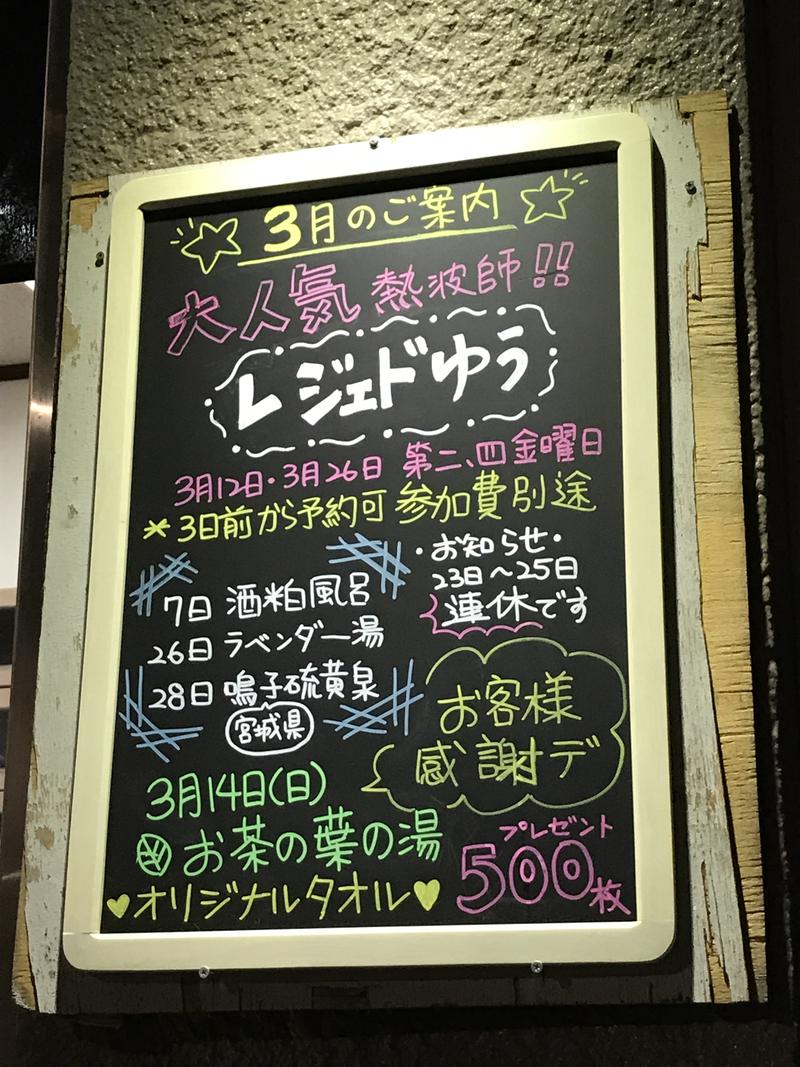 3月のご案内
大人気 熱波師!!
レジェドゆう
3月12日・3月26日 第二、四金曜日
*3日前から予約可 参加費別途
・お知らせ・
23日〜25日
連休です
7日 酒粕風呂
26日 ラベンダー湯
28日 鳴子硫黄泉
宮城県
お客様
感謝デ
3月14日(日)
お茶の葉の湯
オリジナルタオル
プレゼント
500枚